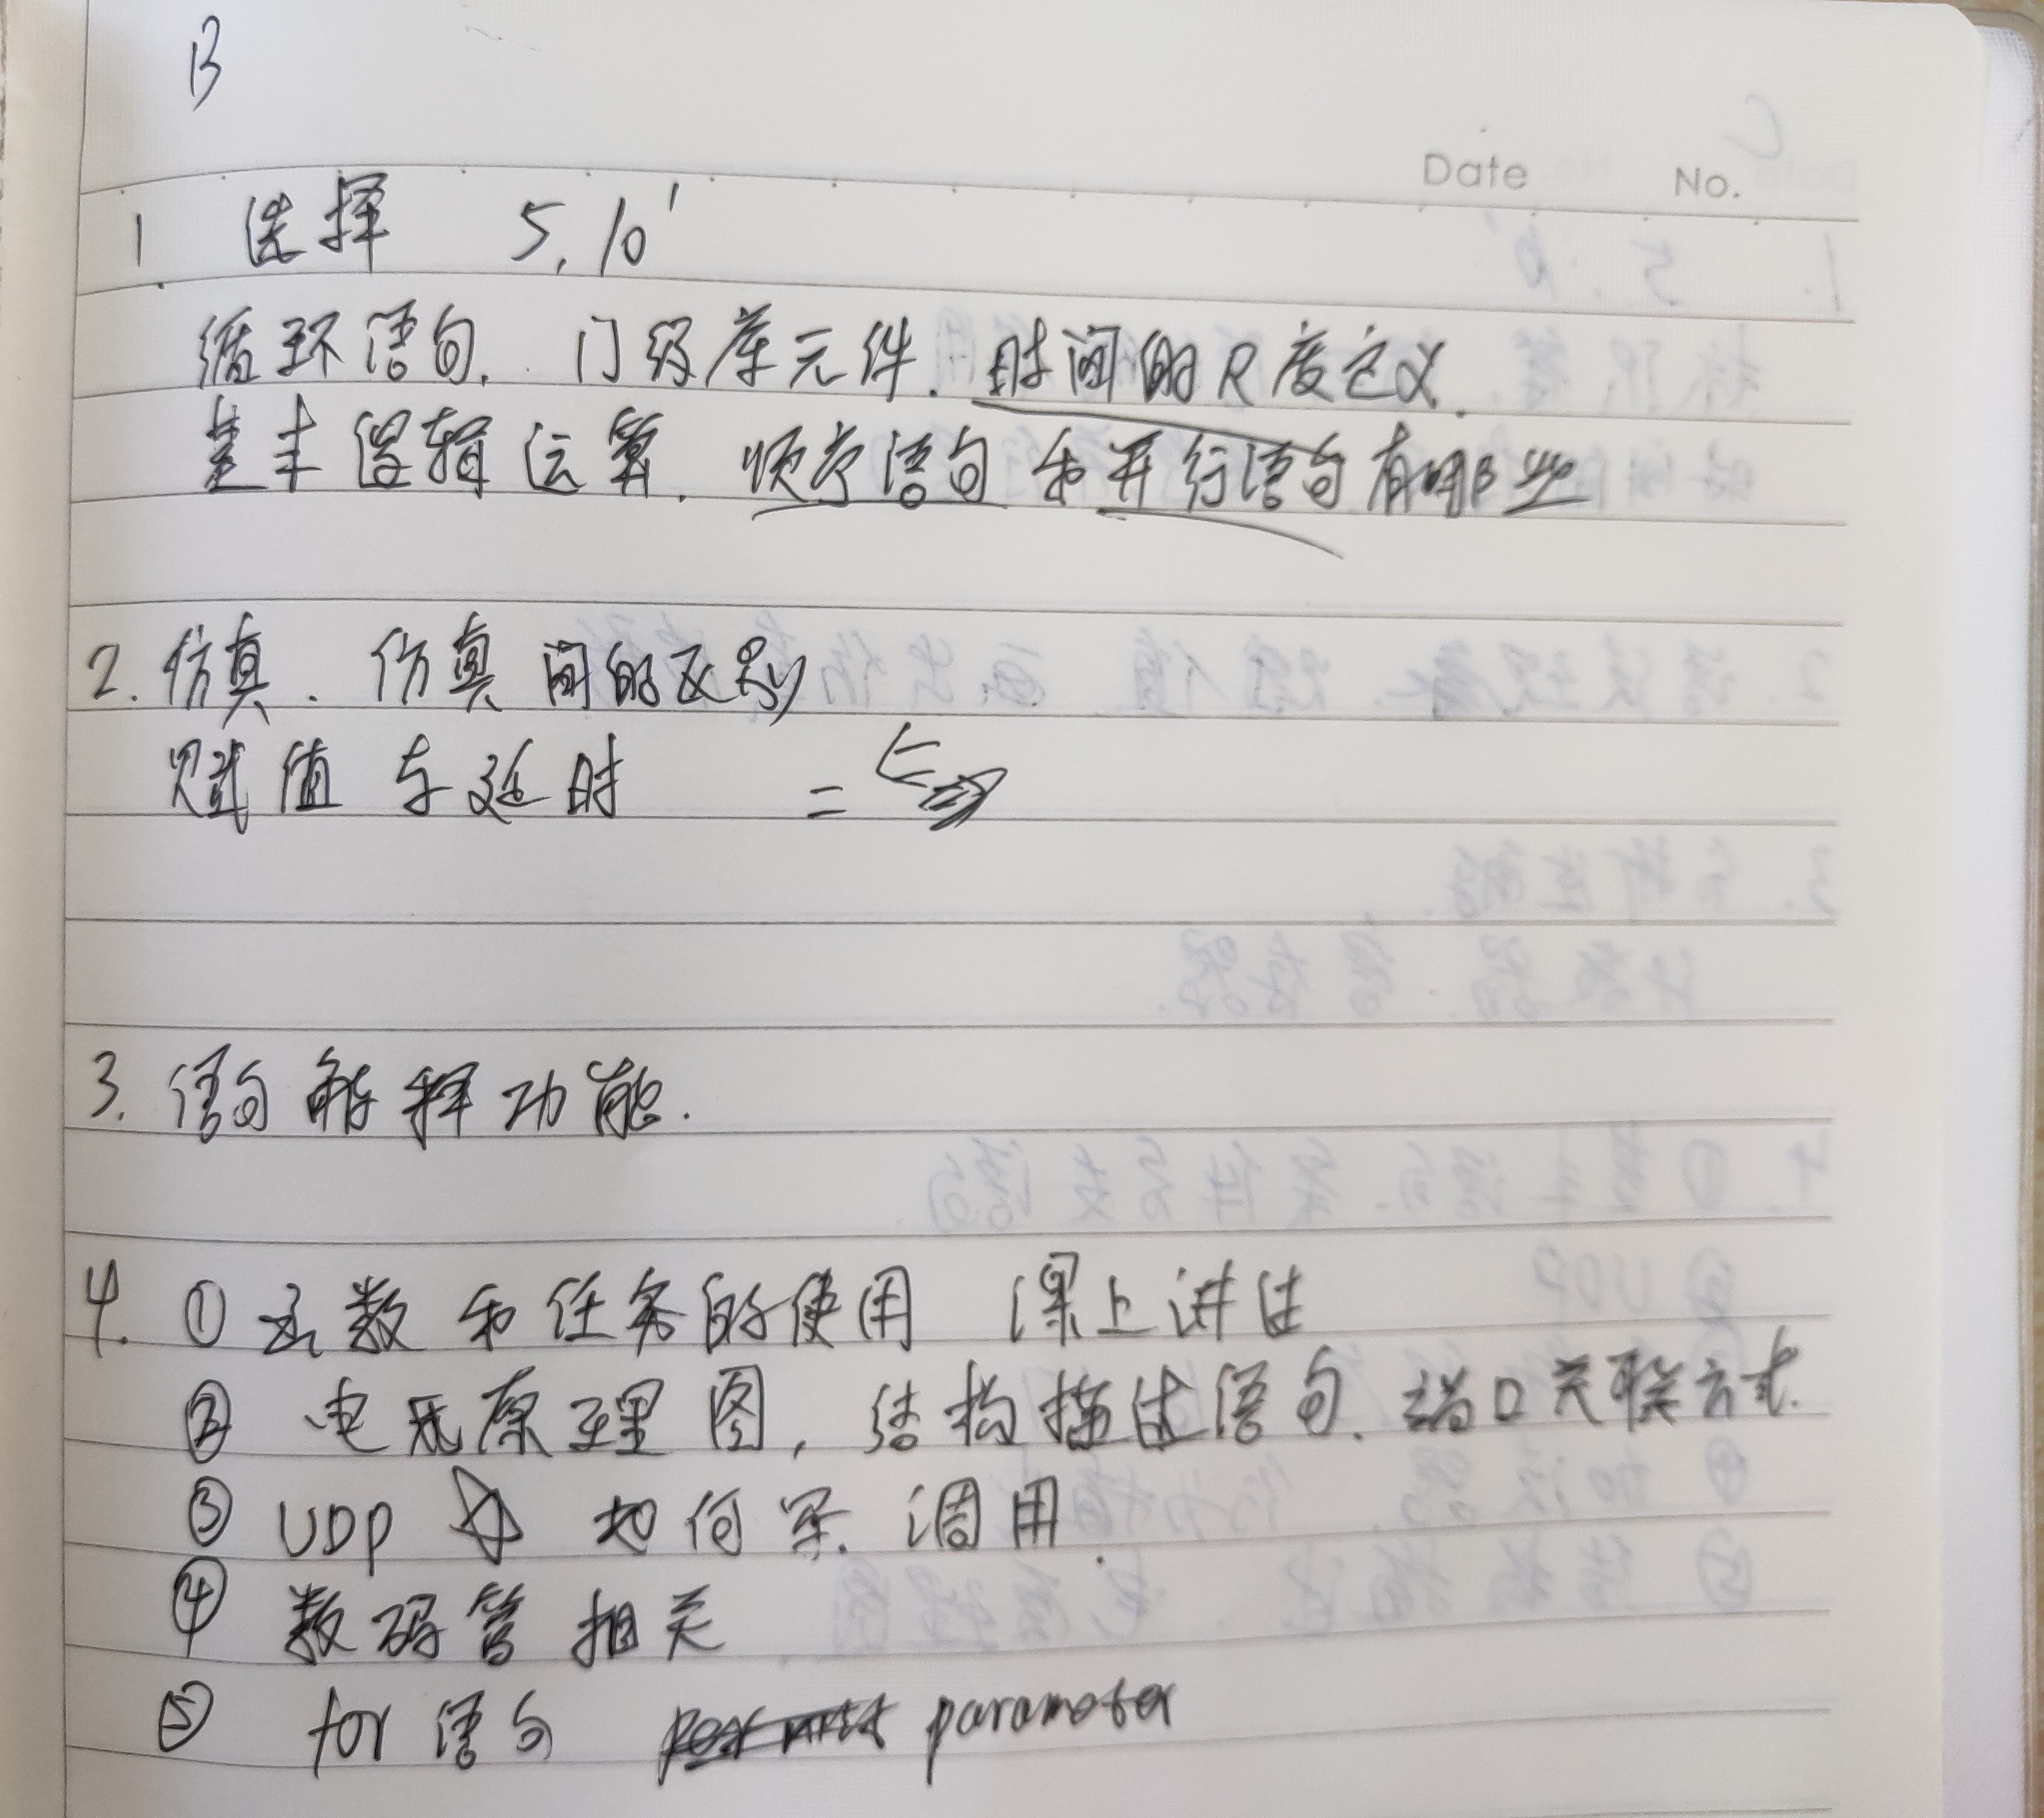 B
Date No.
1 选择 5, 10'
循环语句. 门级库元件. 时间的尺度定义.
基本逻辑运算. 顺序语句和并行语句有哪些
2. 仿真. 仿真间的区别
赋值与延时 = <=
3. 语句解释功能.
4. ① 函数和任务的使用 课上讲过
② 电气原理图, 结构描述语句. 端口关联方式.
③ UDP 如何写. 调用.
④ 数码管相关
⑤ for 语句 parameter